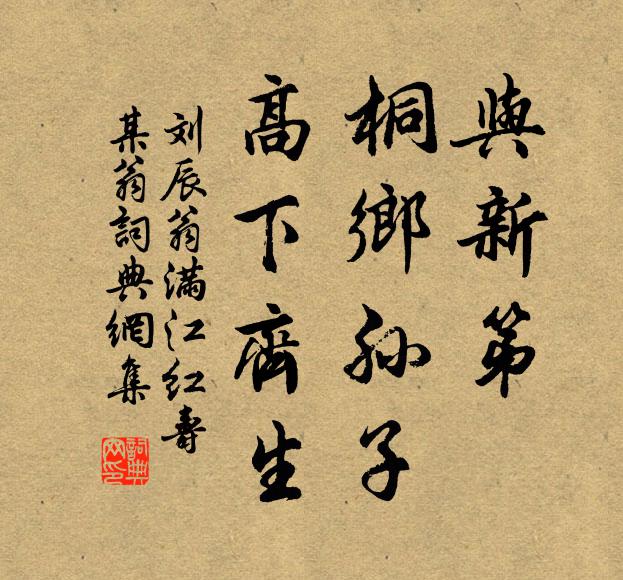 與新第
桐鄉孫子
高下齊生
刘辰翁满江红壽
某翁詞典網集
詞典網印